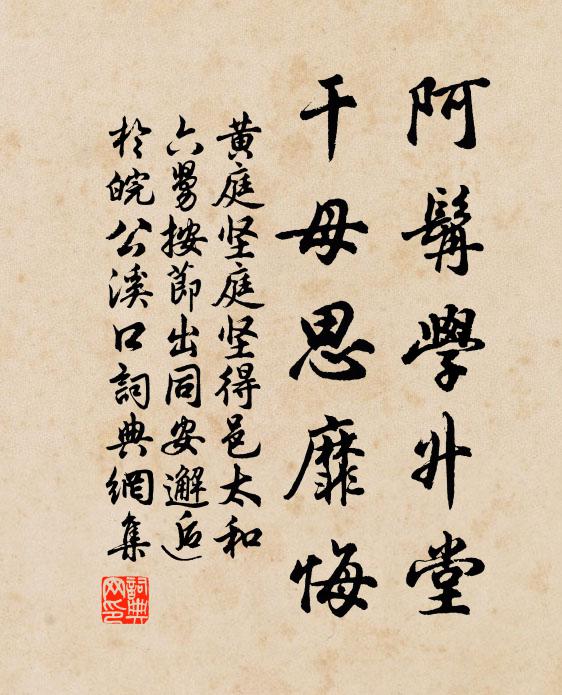 阿髯學升堂
干母思靡悔
黄庭坚庭坚得邑太和
六舅按節出同安邂逅
於皖公溪口詞典網集
詞典
网印